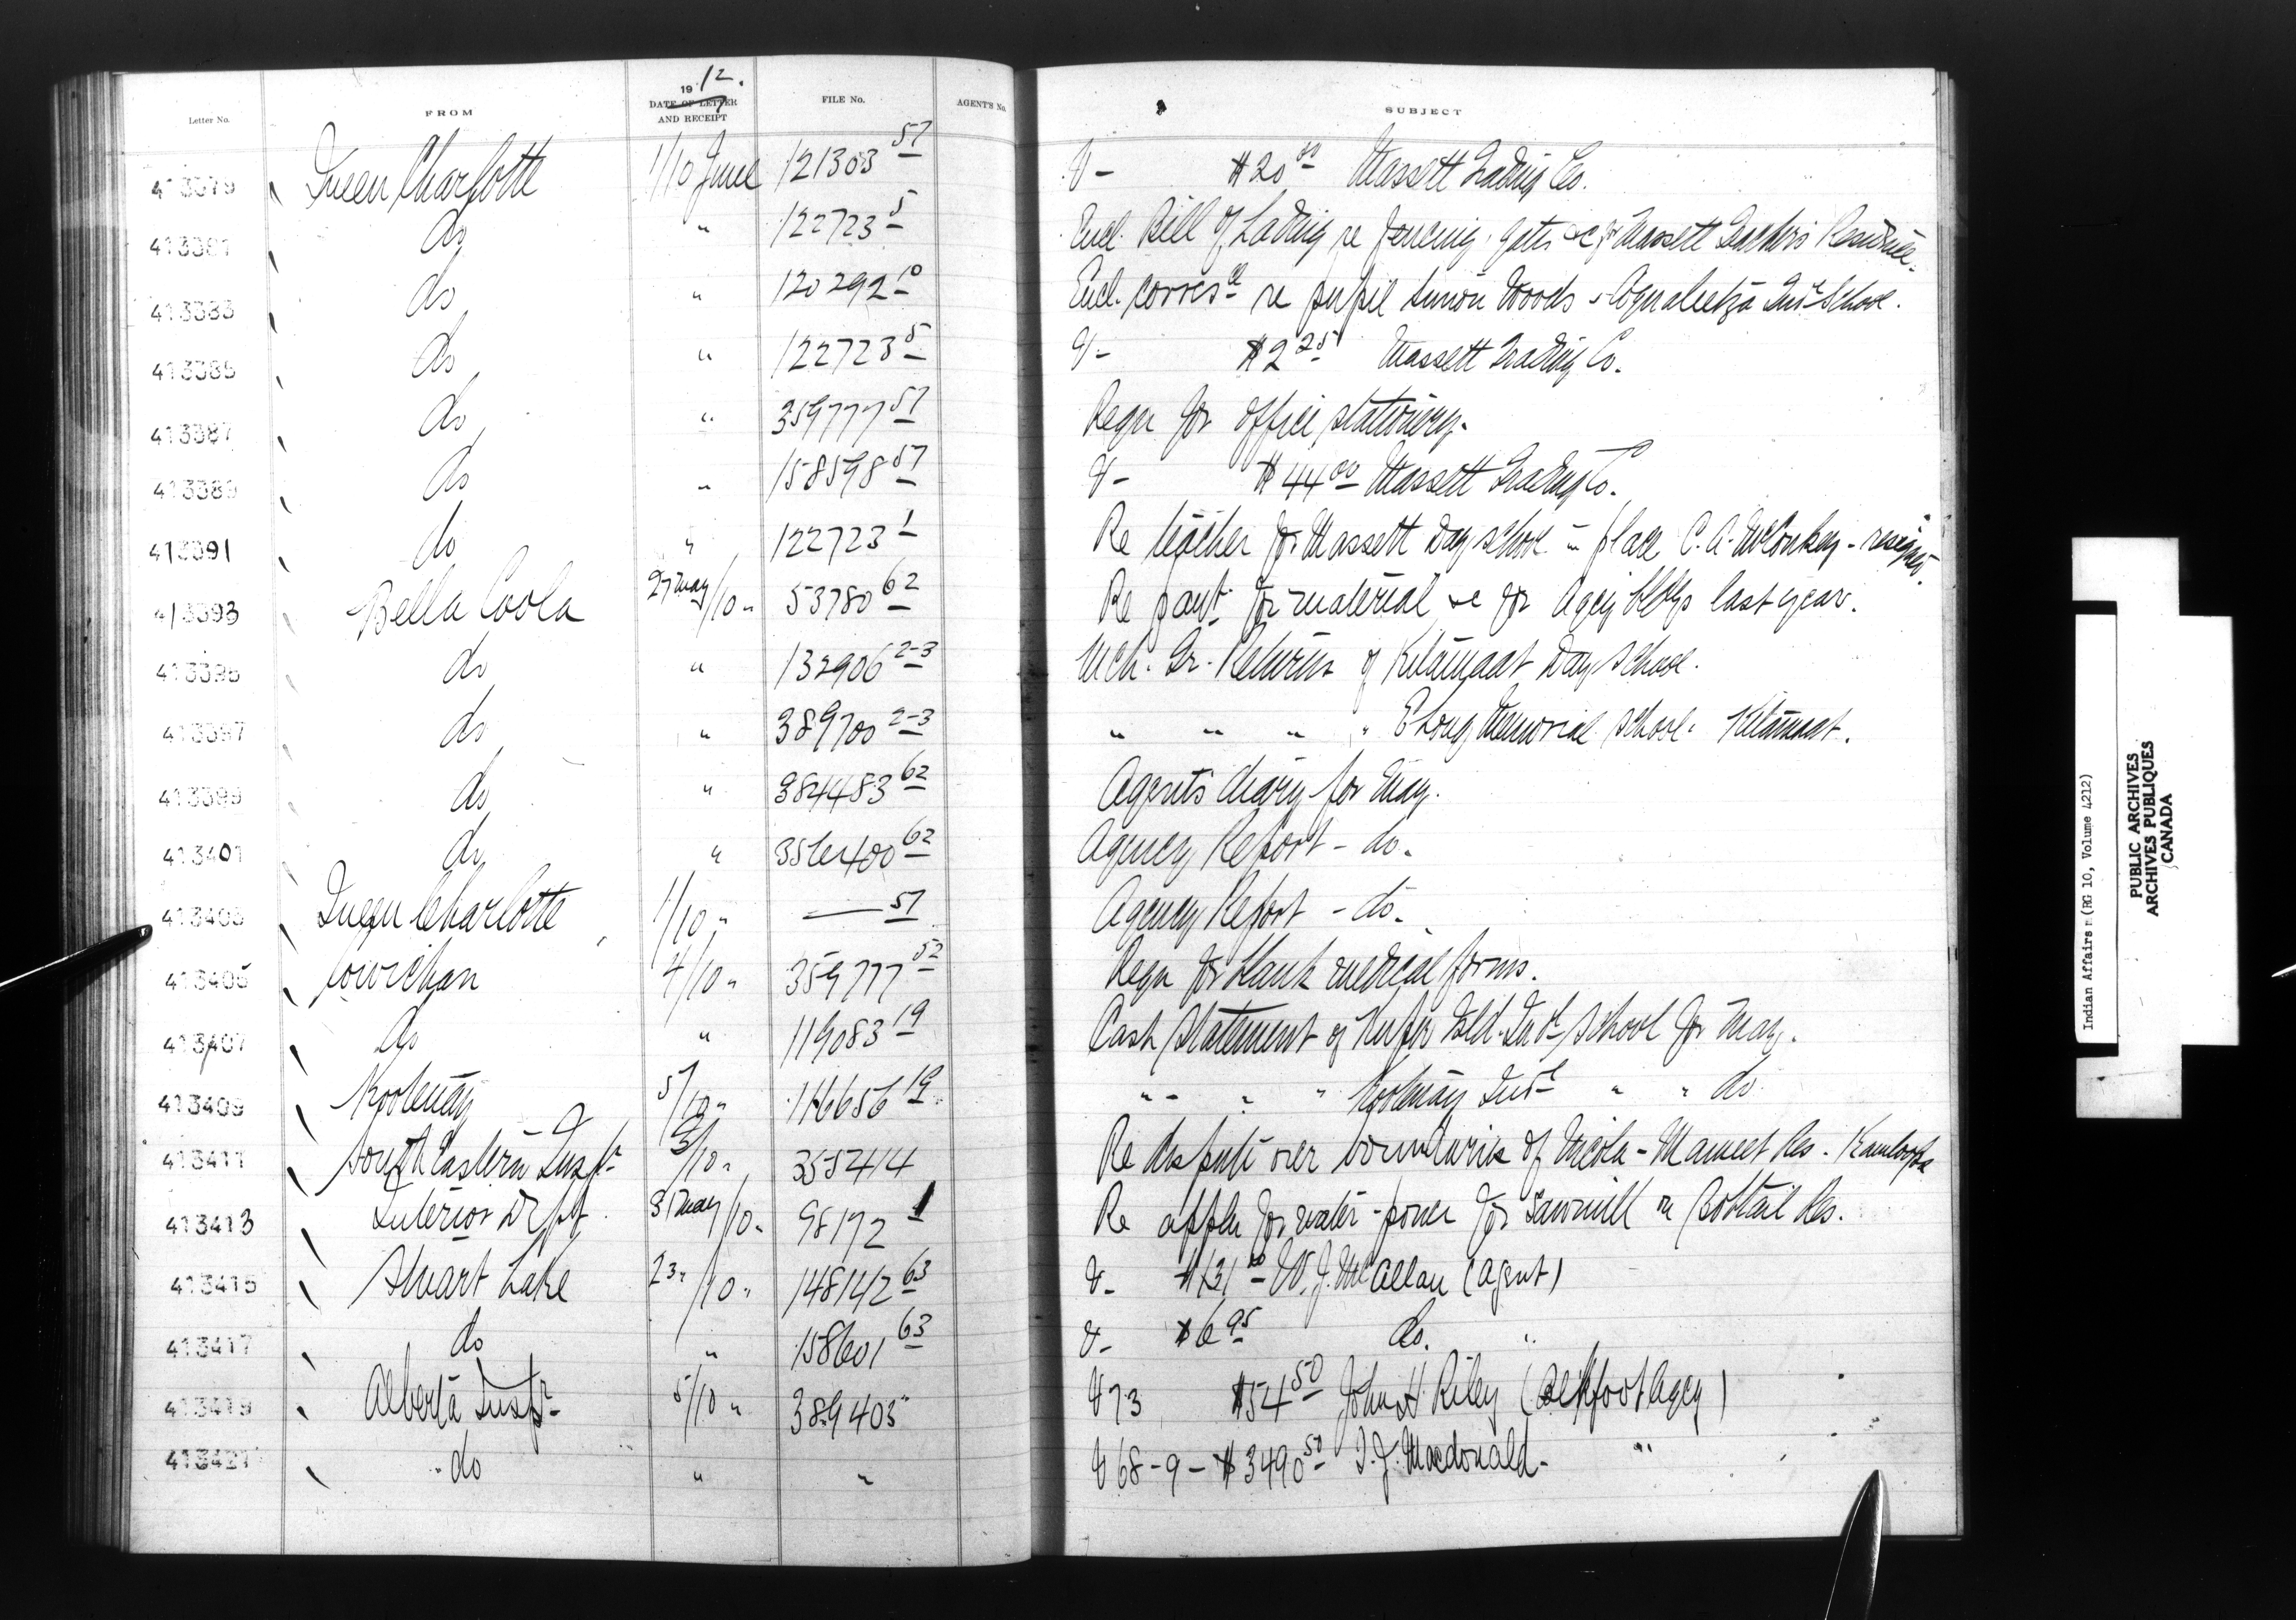 19 12.
Letter No. FROM DATE OF LETTER AND RECEIPT FILE No. AGENT'S No. SUBJECT
413379 Queen Charlotte 1/10 June 121303 57 V - $20 00 Massett Trading Co.
413381 do " 122723 5 Encl. Bill of Lading re fencing, gates &c for Massett Teacher's Residence.
413383 do " 120292 10 Encl. corresce re pupil Simon Woods - Coqualeetza Indl School.
413385 do " 122723 5 V - $2 25 Massett Trading Co.
413387 do " 359777 57 Reqn for office stationery.
413389 do " 158598 57 V - $44 00 Massett Trading Co.
413391 do " 122723 1 Re teacher for Massett Day school in place C. A. McConkey - resigned.
413393 Bella Coola 27 May/10 " 53780 62 Re payt. for material &c for Agcy bldgs last year.
413395 do " 132906 2-3 Mch. Qr. Returns of Kitamaat Day School.
413397 do " 389700 2-3 " " " " E Long Memorial School. Kitamaat.
413399 do " 384483 62 Agent's diary for May.
413401 do " 356400 62 Agency Report - do.
413403 Queen Charlotte 1/10 " — 57 Agency Report - do.
413405 Cowichan 4/10 " 359777 52 Reqn for blank medical forms.
413407 do " 119083 19 Cash Statement of Kuper Isld. Indl School for May.
413409 Kootenay 5/10 " 116656 19 " " " " Kootenay Indl " " do
413411 South Eastern Inspr 3/10 " 355414 Re dispute over boundaries of Nicola - Mameet Res. Kamloops
413413 Interior Dept. 31 May/10 " 98172 1 Re appln for water-power for sawmill on Bobtail Res.
413415 Stuart Lake 23 " /10 " 148142 63 V - $131 W. J. McAllan (Agent)
413417 do " 158601 63 V - $6 95 do. "
413419 Alberta Inspr 5/10 " 389403 V 73 $54 50 John H. Riley (Blkfoot Agcy)
413421 do " " V 68-9 - $3490 50 J. J. Macdonald - "
Indian Affairs (RG 10, Volume 4212)
PUBLIC ARCHIVES
ARCHIVES PUBLIQUES
CANADA